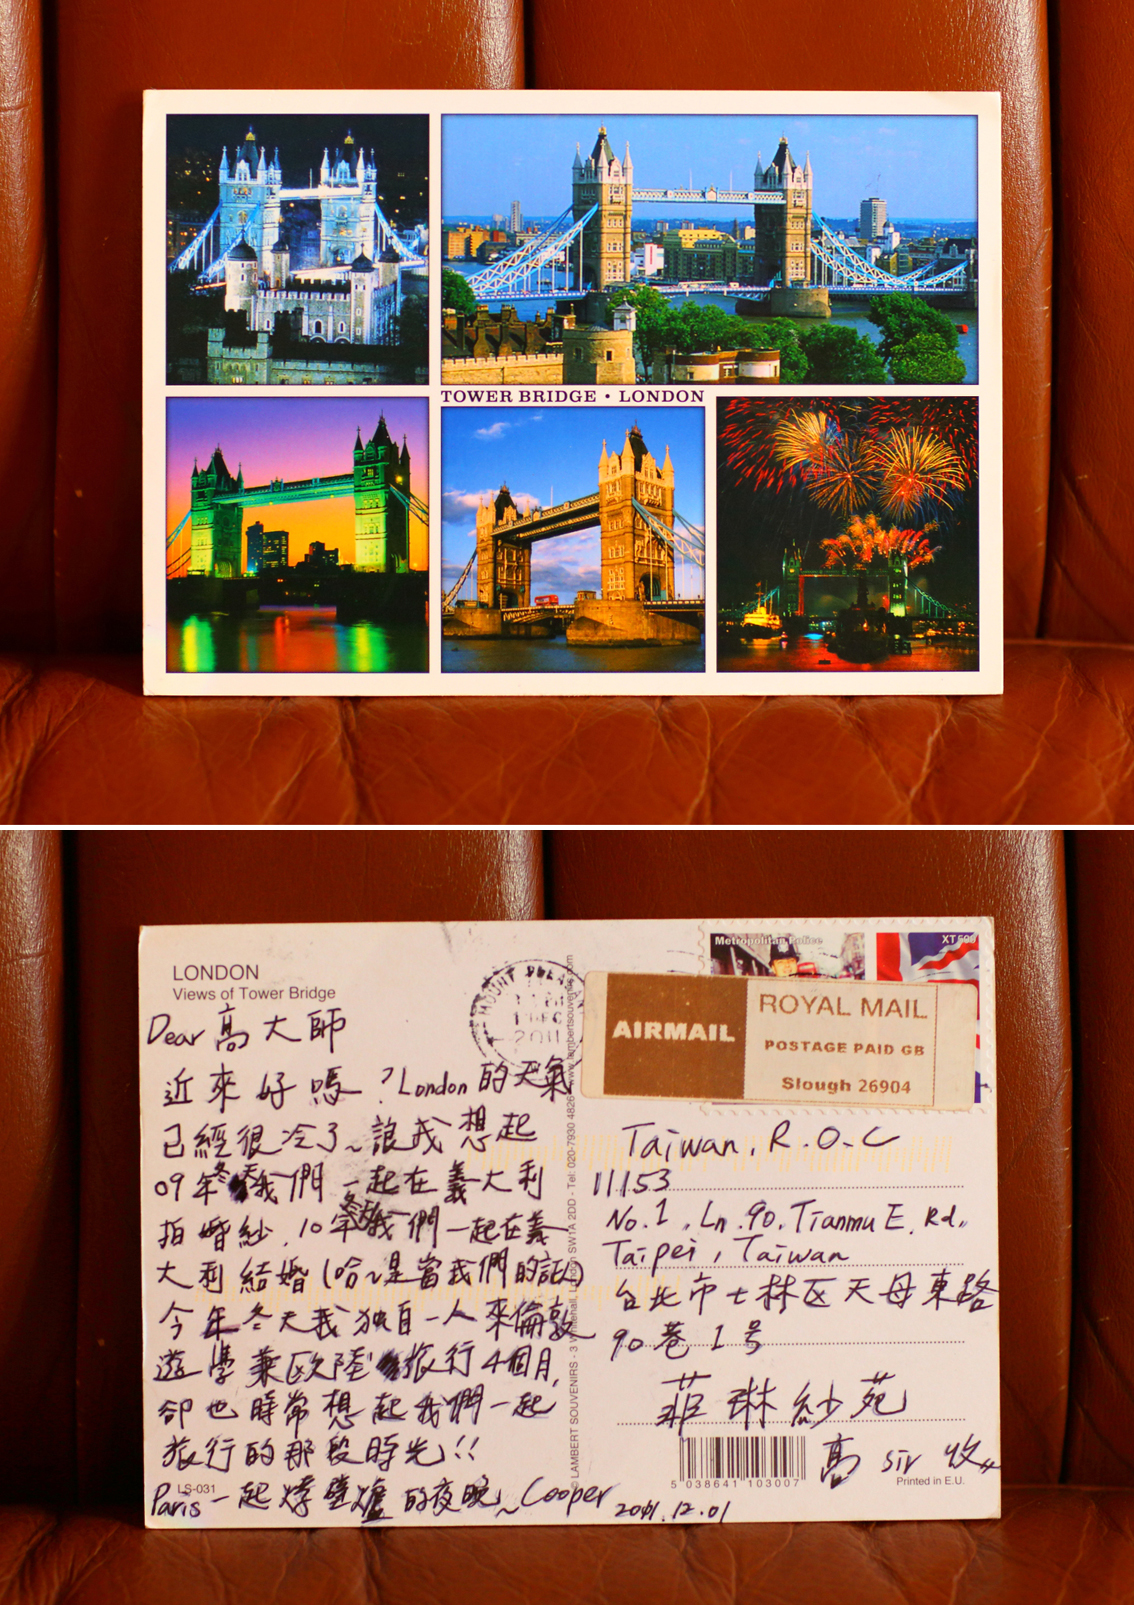 TOWER BRIDGE • LONDON
LONDON
Views of Tower Bridge
Dear 高大師
近來好嗎?London的天氣
已經很冷了~讓我想起
09年冬天我們一起在義大利
拍婚紗.10年冬天我們一起在義
大利結婚(哈~是當我們的証人)
今年冬天我独自一人來倫敦
遊學兼歐陸旅行4個月,
卻也時常想起我們一起
旅行的那段時光!!
LS-031
Paris一起烤壁爐的夜晚~Cooper
2011.12.01
MOUNT PLEASANT
DEC
2011
© LAMBERT SOUVENIRS - 3 Whitehall, London SW1A 2DD - Tel: 020-7930 4826 www.lambertsouvenirs.com
Metropolitan Police
AIRMAIL
ROYAL MAIL
POSTAGE PAID GB
Slough 26904
Taiwan, R.O.C
11153
No.1, Ln.90, Tianmu E. Rd.,
Taipei, Taiwan
台北市士林区天母東路
90巷1号
菲琳紗苑
高 sir 收
5 038641 103007
Printed in E.U.